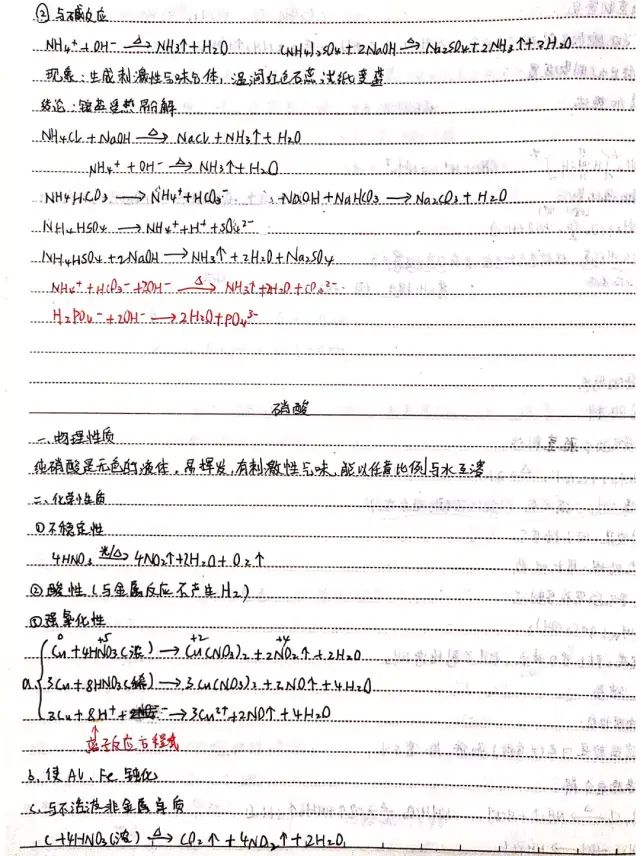 ② 与碱反应
NH₄⁺ + OH⁻ —△→ NH₃↑ + H₂O (NH₄)₂SO₄ + 2NaOH —△→ Na₂SO₄ + 2NH₃↑ + 2H₂O
现象:生成刺激性气味气体,湿润红色石蕊试纸变蓝
结论:铵盐受热易分解
NH₄Cl + NaOH —△→ NaCl + NH₃↑ + H₂O
NH₄⁺ + OH⁻ —△→ NH₃↑ + H₂O
NH₄HCO₃ → NH₄⁺ + HCO₃⁻ , NaOH + NaHCO₃ → Na₂CO₃ + H₂O
NH₄HSO₄ → NH₄⁺ + H⁺ + SO₄²⁻
NH₄HSO₄ + 2NaOH → NH₃↑ + 2H₂O + Na₂SO₄
NH₄⁺ + HCO₃⁻ + 2OH⁻ —△→ NH₃↑ + 2H₂O + CO₃²⁻
H₂PO₄⁻ + 2OH⁻ → 2H₂O + PO₄³⁻
硝酸
一、物理性质
纯硝酸是无色的液体,易挥发,有刺激性气味,能以任意比例与水互溶
二、化学性质
①不稳定性
4HNO₃ —光/△→ 4NO₂↑ + 2H₂O + O₂↑
②酸性(与金属反应不产生H₂)
③强氧化性
0 +5 +2 +4
a. Cu + 4HNO₃(浓) → Cu(NO₃)₂ + 2NO₂↑ + 2H₂O
3Cu + 8HNO₃(稀) → 3Cu(NO₃)₂ + 2NO↑ + 4H₂O
3Cu + 8H⁺ + → 3Cu²⁺ + 2NO↑ + 4H₂O
离子反应方程式
b. 使Al、Fe钝化
c. 与不活泼非金属单质
C + 4HNO₃(浓) —△→ CO₂↑ + 4NO₂↑ + 2H₂O